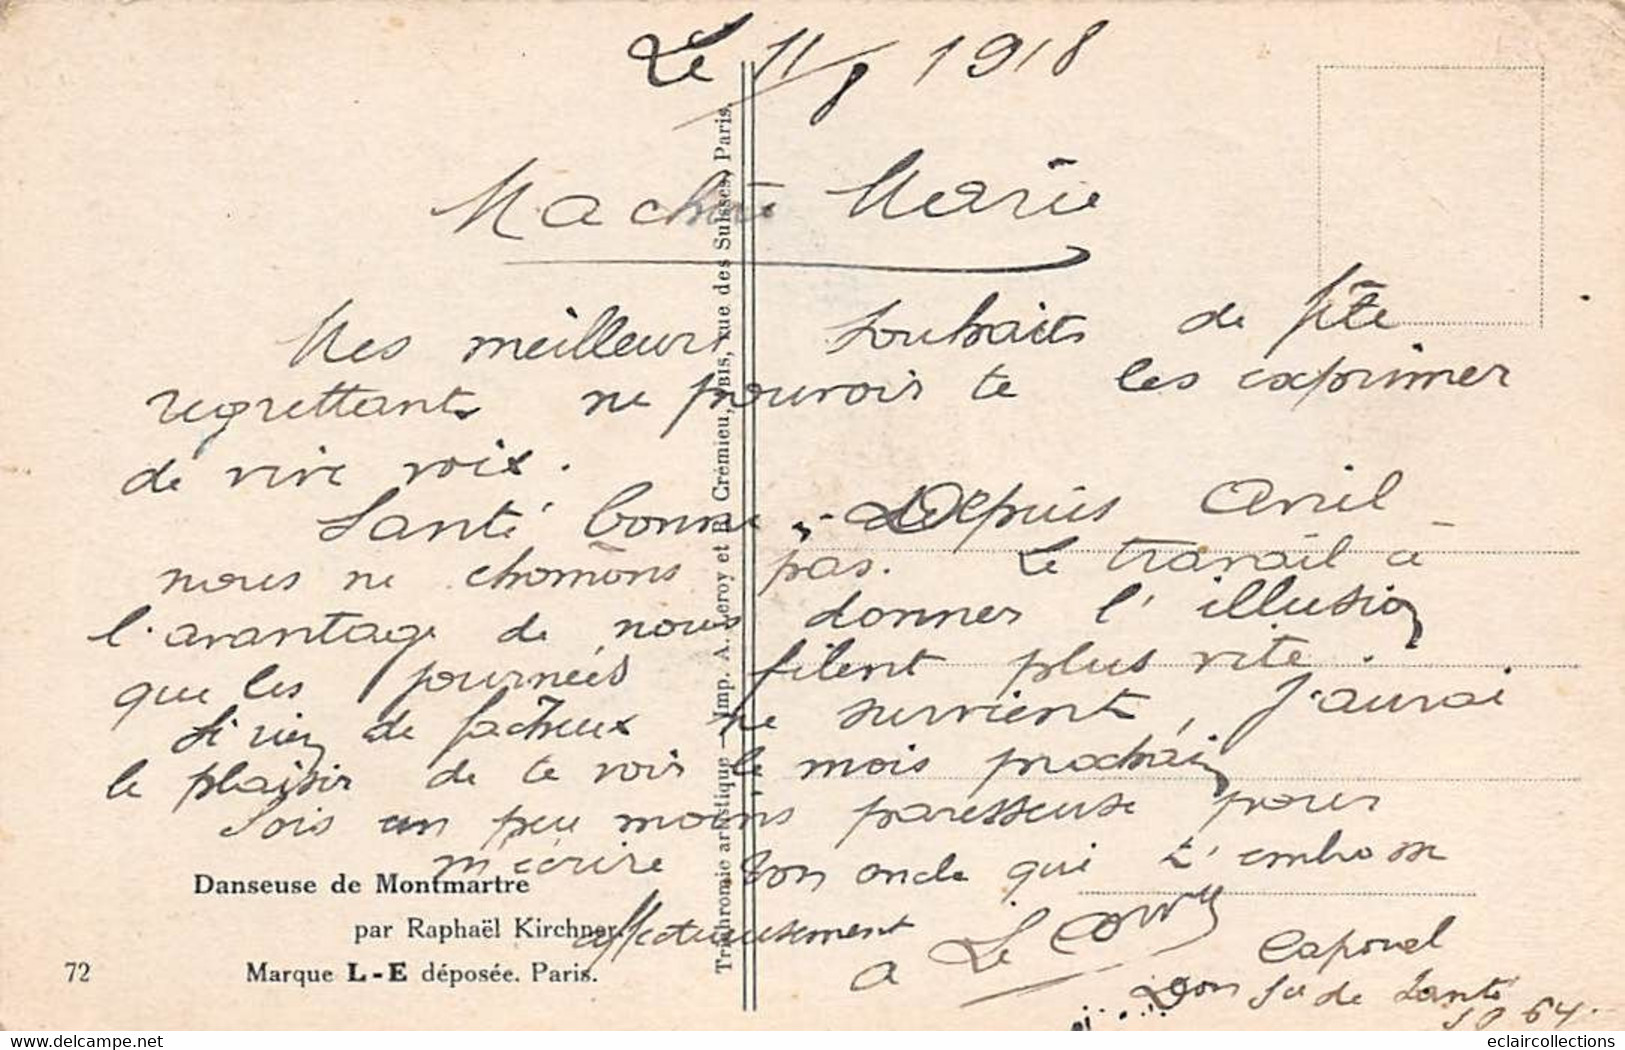 Le 11/8 1918
Ma chère Marie
Mes meilleurs souhaits de fête
regrettant ne pouvoir te les exprimer
de vive voix.
Santé bonne. Depuis Avril
nous ne chômons pas. Le travail a
l'avantage de nous donner l'illusion
que les journées filent plus vite.
Si rien de facheux ne survient, j'aurai
le plaisir de te voir le mois prochain
Sois un peu moins paresseuse pour
m'écrire Ton oncle qui t'embrasse
affectueusement
Le
Caporal
Son de Santé
SP 64
Danseuse de Montmartre
par Raphaël Kirchner.
72 Marque L-E déposée. Paris.
Trichromie artistique — Imp. A. Leroy et R. Crémieu, BIS, rue des Suisses, Paris.
eclaircollections